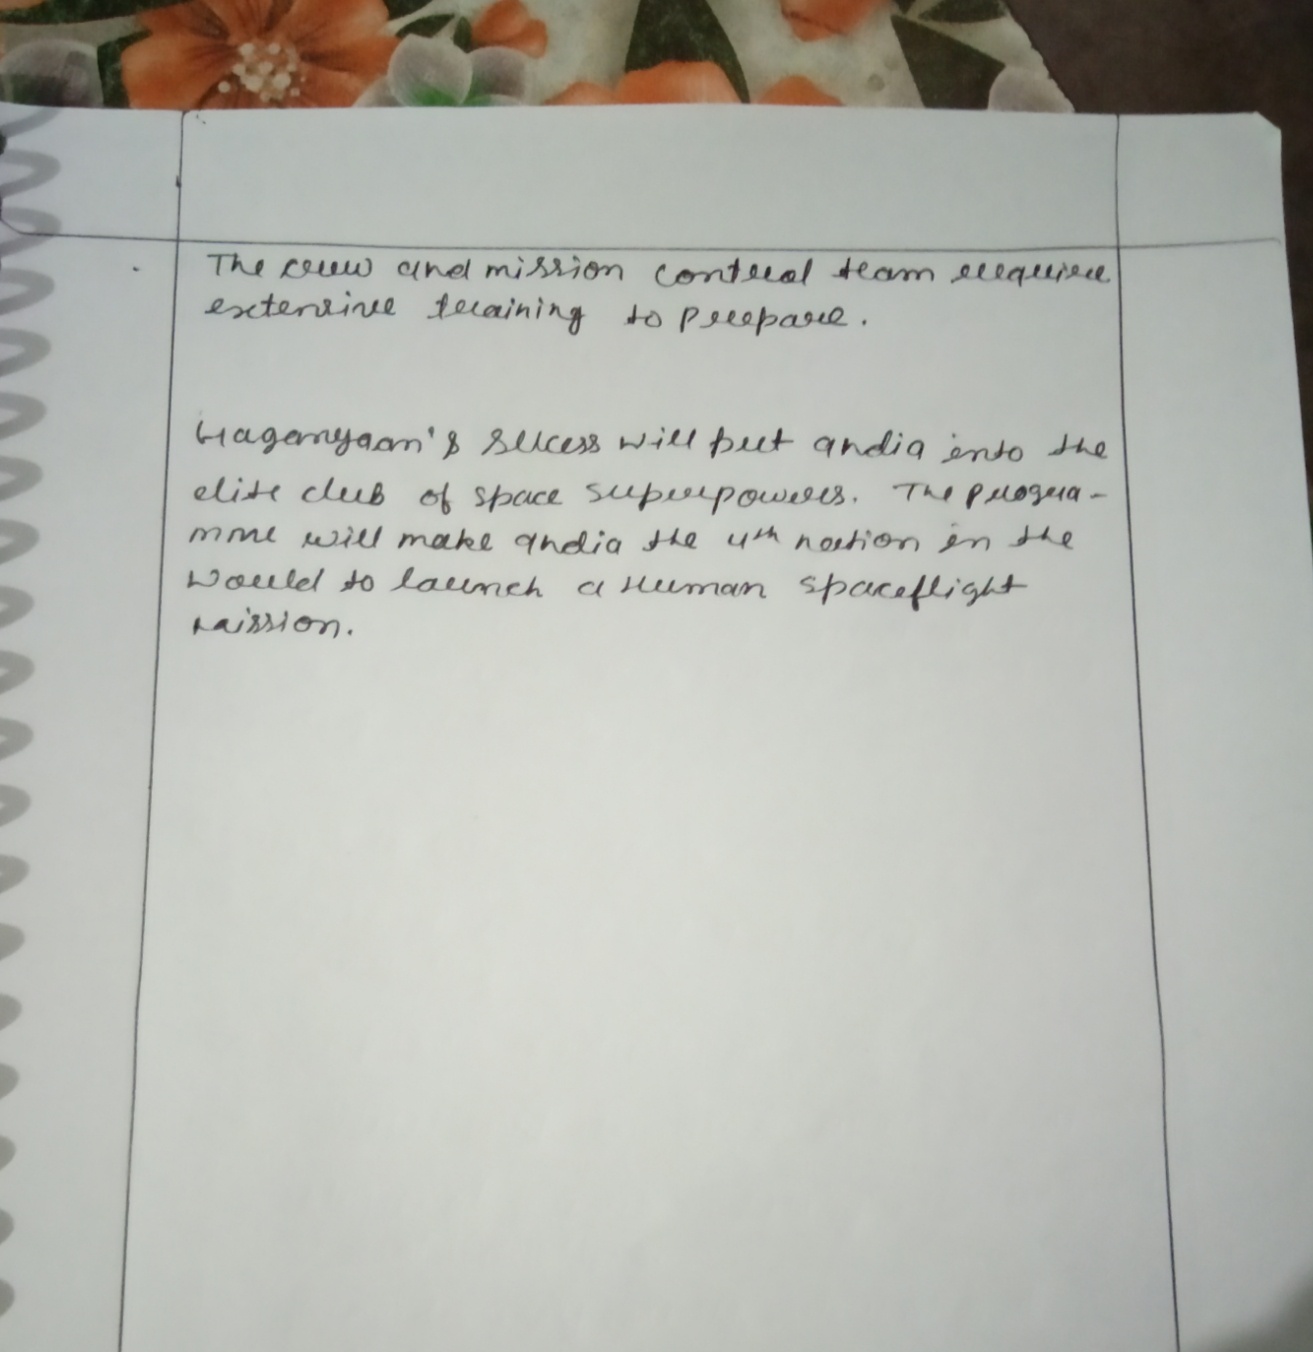 The crew and mission control team require
extensive training to prepare.
Gaganyaan's sucess will put India into the
elite club of space superpowers. The progra-
mme will make India the 4th nation in the
world to launch a Human spaceflight
mission.